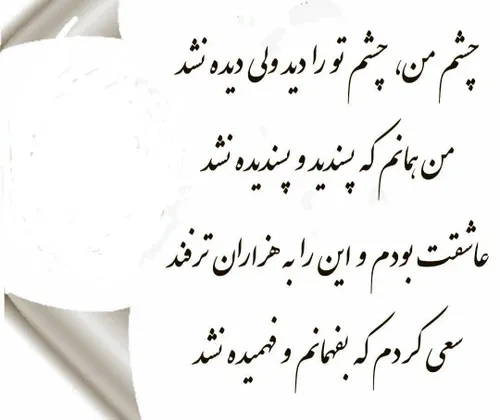 چشم من، چشم تو را دید ولی دیده نشد
من همانم که پسندید و پسندیده نشد
عاشقت بودم و این را به هزاران ترفند
سعی کردم که بفهمانم و فهمیده نشد